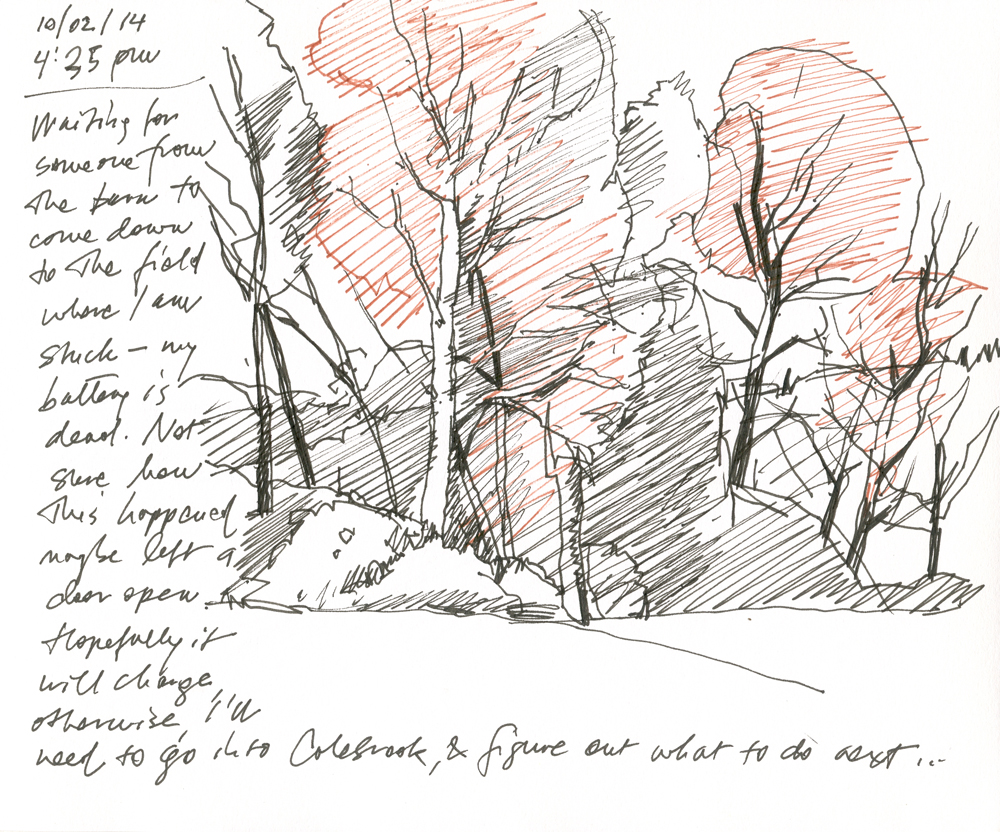 10/02/14
4:35 pm
Waiting for
someone from
the barn to
come down
to the field
where I am
stuck – my
battery is
dead. Not
sure how
this happened
maybe left a
door open
Hopefully it
will charge
otherwise, I'll
need to go into Colebrook, & figure out what to do next ...